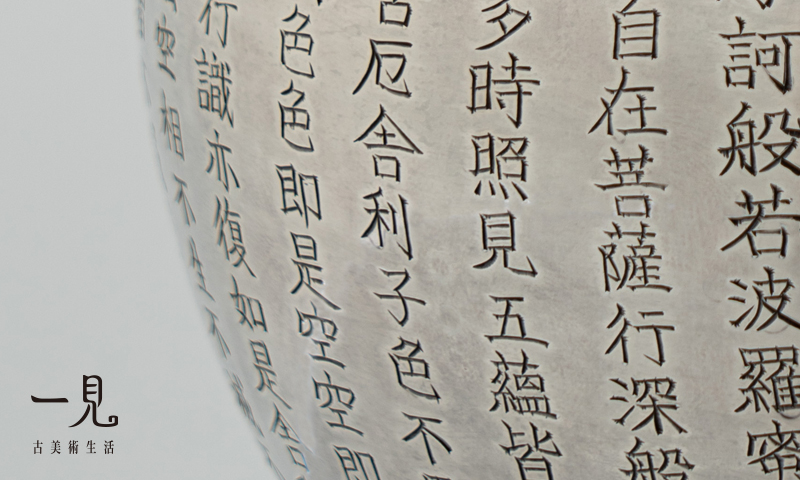 訶般若波羅蜜
自在菩薩行深般
多時照見五蘊皆
苦厄舍利子色不
色色即是空空即
行識亦復如是舍
空相不生不滅
一見
古美術生活